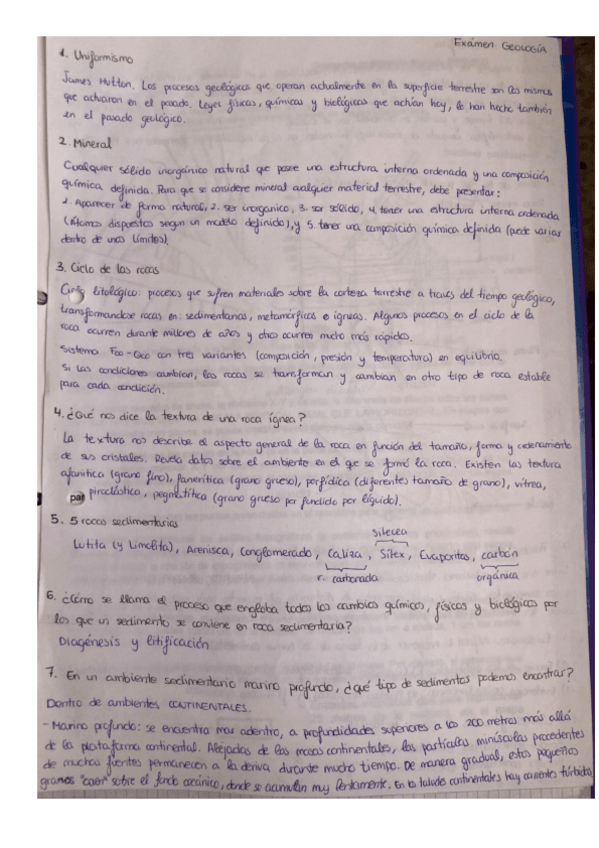 Exámen Geología
1. Uniformismo
James Hutton. Los procesos geológicos que operan actualmente en la superficie terrestre son los mismos
que actuaron en el pasado. Leyes físicas, químicas y biológicas que actúan hoy, lo han hecho también
en el pasado geológico.
2. Mineral
Cualquier sólido inorgánico natural que posee una estructura interna ordenada y una composición
química definida. Para que se considere mineral cualquier material terrestre, debe presentar:
1. Aparecer de forma natural, 2. ser inorganico, 3. ser sólido, 4. tener una estructura interna ordenada
(Átomos dispuestos segun un modelo definido), y 5. tener una composición química definida (puede variar
dentro de unos límites).
3. Ciclo de las rocas
Ciclo litológico: procesos que sufren materiales sobre la corteza terrestre a traves del tiempo geológico,
transformandose rocas en: sedimentarias, metamórficas o ígneas. Algunos procesos en el ciclo de la
roca ocurren durante millones de años y otros ocurren mucho más rápidos.
Sistema con tres variantes (composición, presión y temperatura) en equilibrio.
Si las condiciones cambian, las rocas se transforman y cambian en otro tipo de roca estable
para cada condición.
4. ¿Qué nos dice la textura de una roca ígnea?
La textura nos describe el aspecto general de la roca en función del tamaño, forma y ordenamiento
de sus cristales. Revela datos sobre el ambiente en el que se formó la roca. Existen las textura
afanitica (grano fino), fanerítica (grano grueso), porfídica (diferentes tamaño de grano), vítrea,
piroclástica, pegmatítica (grano grueso por fundido por líquido).
5. 5 rocas sedimentarias
silecea
Lutita (y Limolita), Arenisca, Conglomerado, Caliza, Sílex, Evaporitas, carbón
r. carbonada orgánica
6. ¿Cómo se llama el proceso que engloba todos los cambios químicos, físicos y biológicos por
los que un sedimento se conviene en roca sedimentaria?
Diagénesis y litificación
7. En un ambiente sedimentario marino profundo, ¿qué tipo de sedimentos podemos encontrar?
Dentro de ambientes CONTINENTALES.
- Marino profundo: se encuentra mas adentro, a profundidades superiores a los 200 metros más allá
de la plataforma continental. Alejadas de las masas continentales, las partículas minúsculas procedentes
de muchas fuentes permanecen a la deriva durante mucho tiempo. De manera gradual, estos pequeños
granos "caen" sobre el fondo oceánico, donde se acumulan muy lentamente. En los taludes continentales hay corrientes túrbidas